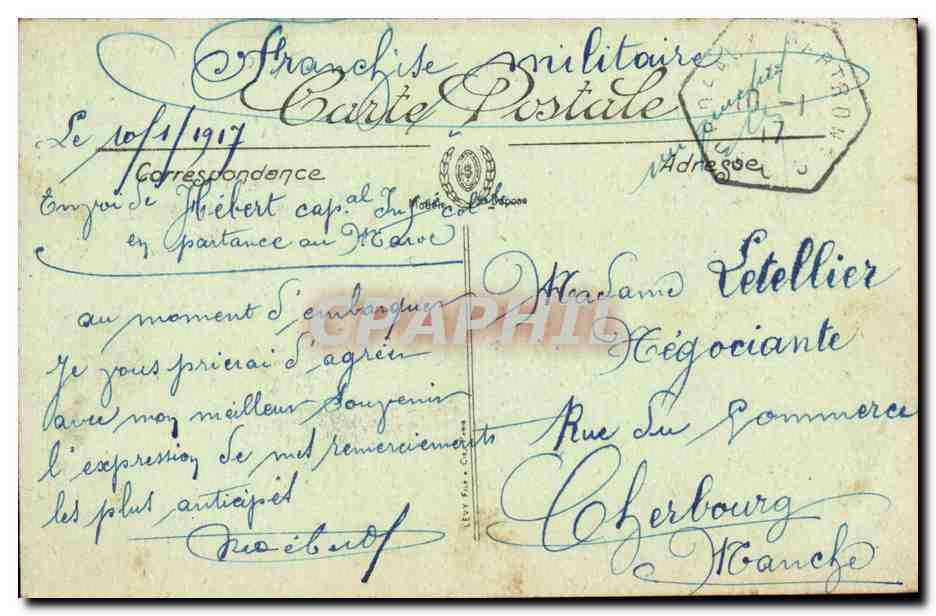 Franchise militaire
Carte Postale
Le 10/1/1917
Correspondance
Adresse
Envoi de Hébert cap.al Inf.ie col.le
en partance au Maroc
au moment d'embarquer
Je vous prierai d'agréer
avec mon meilleur Souvenir
l'expression de mes remerciements
les plus anticipés
Hébert
Madame Letellier
Négociante
Rue du Commerce
Cherbourg
Manche
LEVY Fils & Cie
10 -1
17
CPAPHIL